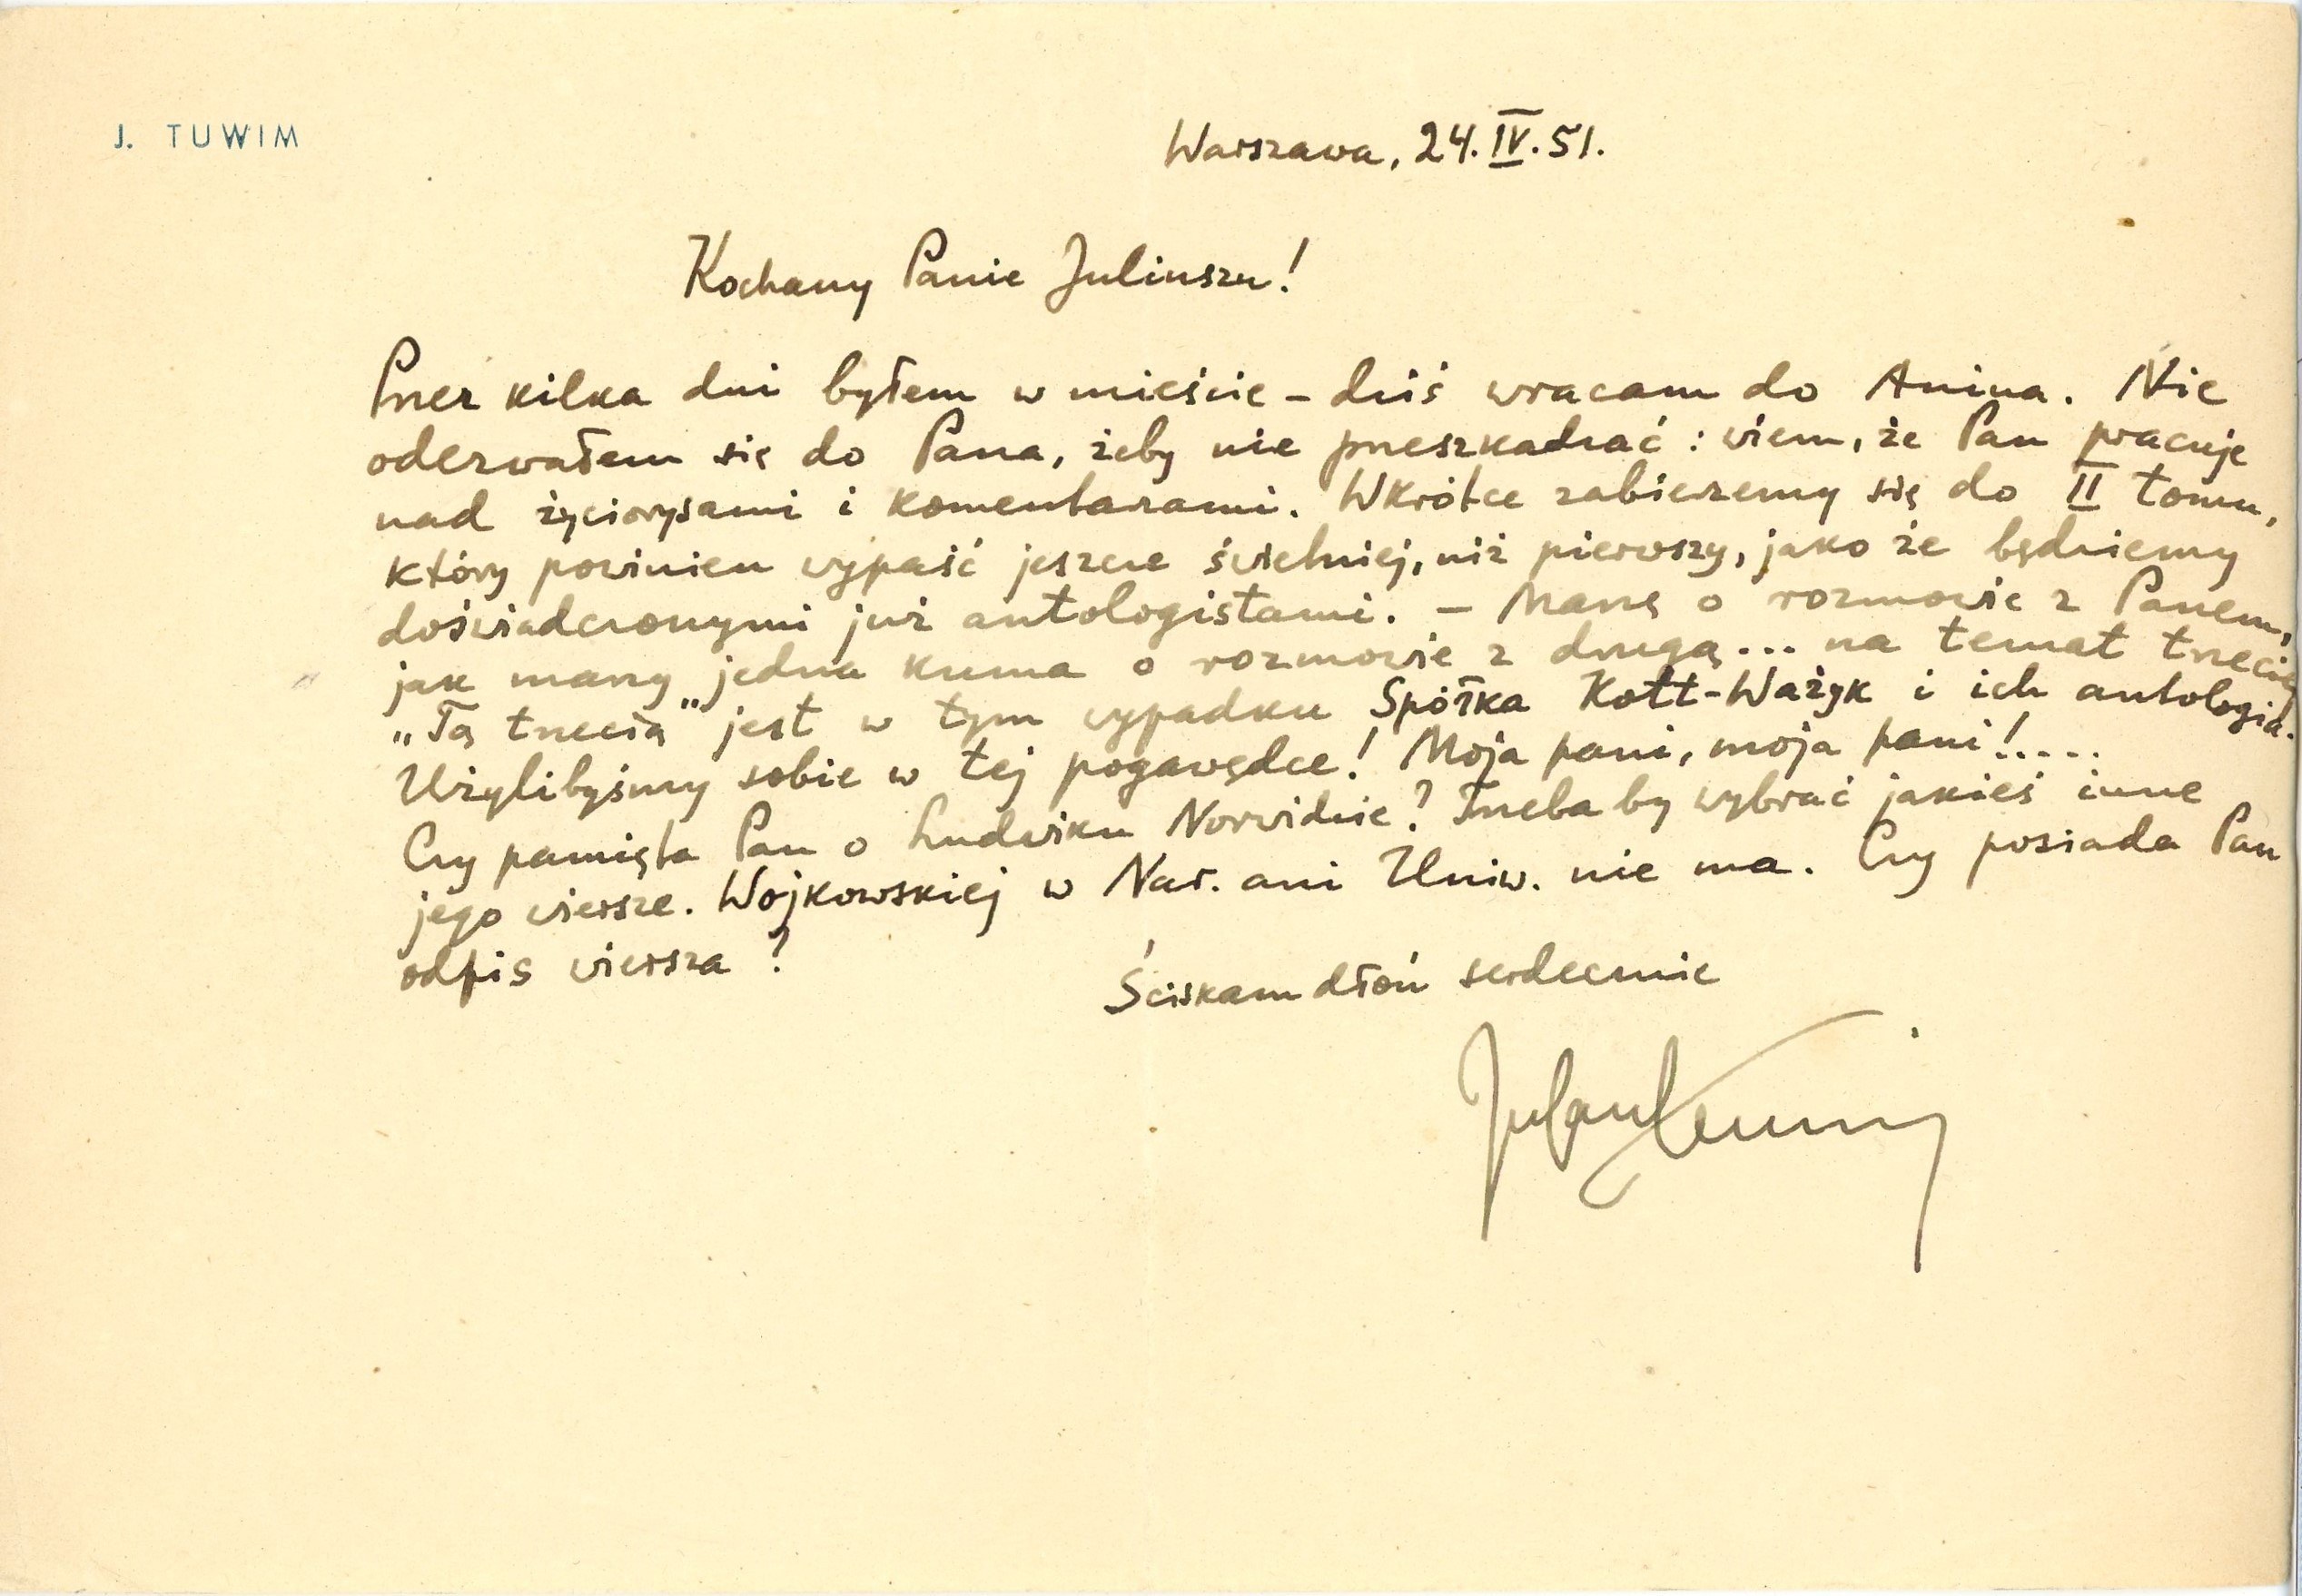 J. TUWIM
Warszawa, 24.IV.51.
Kochany Panie Juliuszu!
Przez kilka dni byłem w mieście – dziś wracam do Anina. Nie
odezwałem się do Pana, żeby nie przeszkadzać: wiem, że Pan pracuje
nad życiorysami i komentarzami. Wkrótce zabierzemy się do II tomu,
który powinien wypaść jeszcze świetniej, niż pierwszy, jako że będziemy
doświadczonymi już antologistami. – Marzę o rozmowie z Panem,
jak marzy jedna kuma o rozmowie z drugą... na temat trzeciej
„Tą trzecią” jest w tym wypadku Spółka Kott-Ważyk i ich antologia.
Użylibyśmy sobie w tej pogawędce! Moja pani, moja pani!....
Czy pamięta Pan o Ludwiku Norwidzie? Trzeba by wybrać jakieś inne
jego wiersze. Wojkowskiej w Nar. ani Uniw. nie ma. Czy posiada Pan
odpis wiersza?
Ściskam dłoń serdecznie
Julian Tuwim